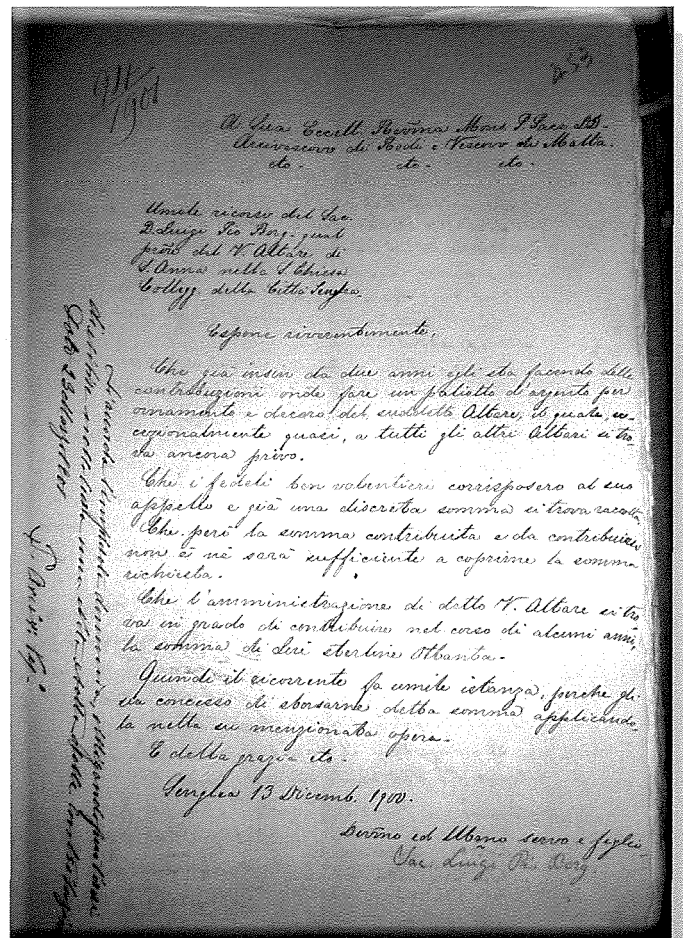 911/1901
253
A Sua Eccell. Revma Mons P. Pace DD.
Arcivescovo di Rodi e Vescovo di Malta.
etc. etc. etc.
Umile ricorso del Sac.
D. Luigi Po Borg. qual
proe del V. Altare di
S. Anna nella S. Chiesa
Collegg. della Città Senglea.
Espone riverentemente,
Che già insin da due anni egli sta facendo delle
contribuzioni onde fare un paliotto d'argento per
ornamento e decoro del suddetto Altare, il quale, ec-
cezionalmente quasi, a tutti gli altri Altari si tro
va ancora privo.
Che i fedeli ben volentieri corrisposero al suo
appello e già una discreta somma si trova raccolta.
Che però la somma contribuita e da contribuirsi
non è nè sarà sufficiente a coprirne la somma
richiesta.
Che l'amministrazione di detto V. Altare si tro
va in grado di contribuire nel corso di alcuni anni,
la somma di Lire sterline Ottanta.
Quindi il ricorrente fa umile istanza, perche gli
sia concesso di sborsarne detta somma applicando
la nella su menzionata opera.
E della grazia etc.
Senglea 13 Dicemb. 1900.
Devmo ed Ubmo servo e figlio
Sac. Luigi Po. Borg.